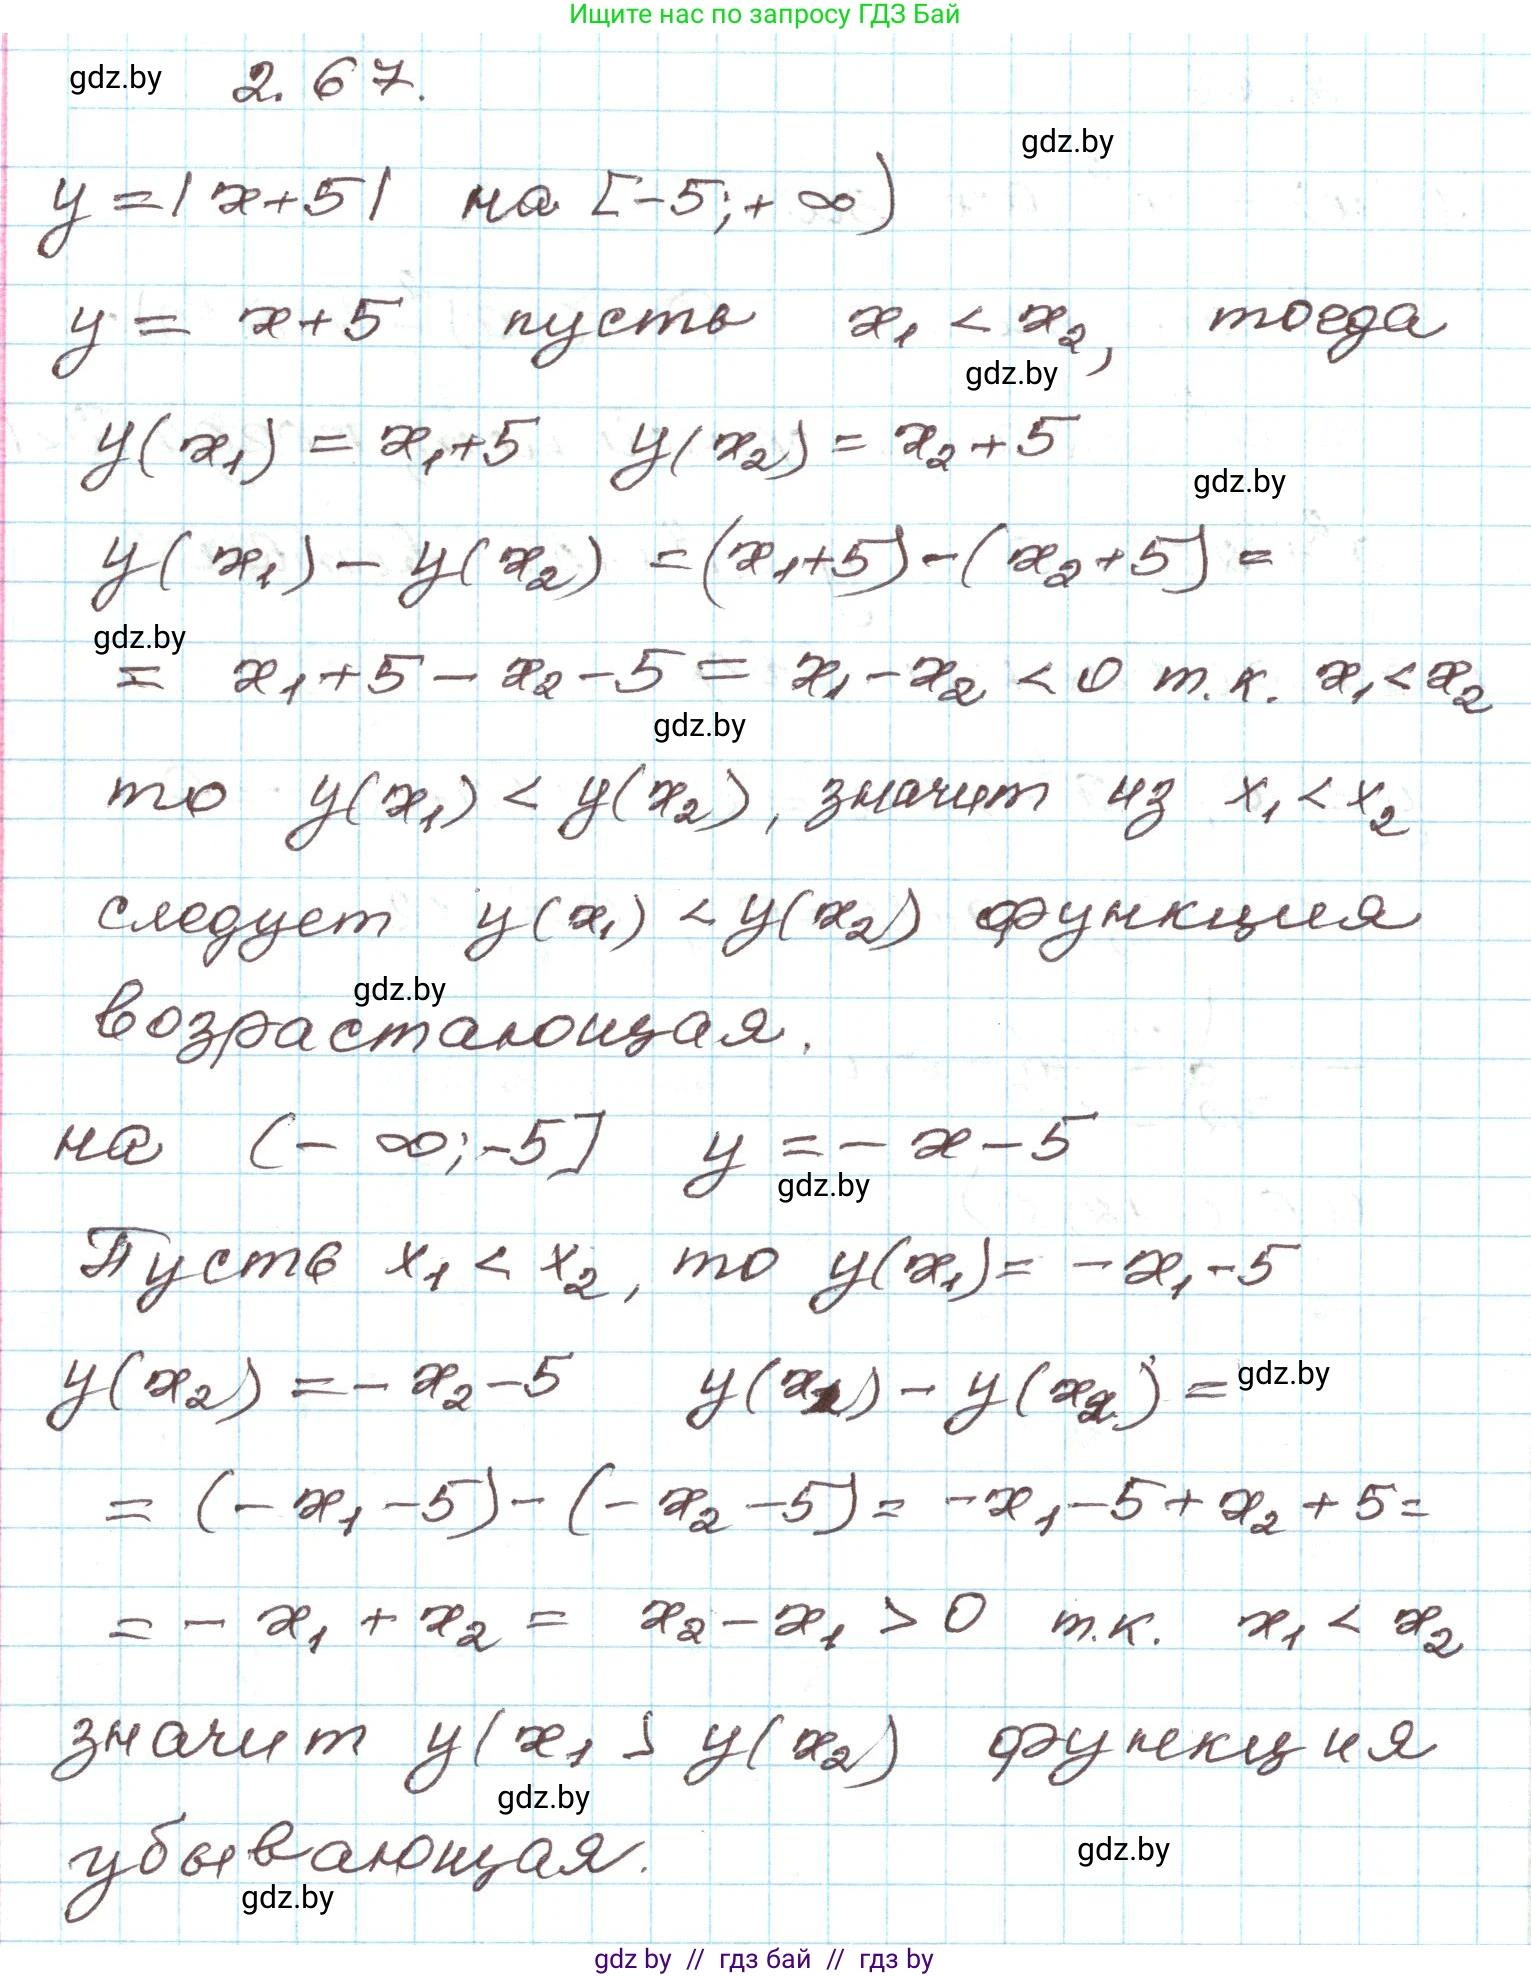 Ищите нас по запросу ГДЗ Бай
gdz.by 2.67.
gdz.by
y = |x+5| на [-5; +∞)
y = x+5 пусть x₁ < x₂, тогда
gdz.by
y(x₁) = x₁+5 y(x₂) = x₂+5
gdz.by
y(x₁) - y(x₂) = (x₁+5) - (x₂+5) =
gdz.by
= x₁+5 - x₂ - 5 = x₁ - x₂ < 0 т.к. x₁ < x₂
gdz.by
то y(x₁) < y(x₂), значит из x₁ < x₂
следует y(x₁) < y(x₂) функция
gdz.by
возрастающая.
на (-∞; -5] y = -x-5
gdz.by
Пусть x₁ < x₂, то y(x₁) = -x₁-5
y(x₂) = -x₂-5 y(x₁) - y(x₂) =
gdz.by
= (-x₁-5) - (-x₂-5) = -x₁-5+x₂+5 =
= -x₁+x₂ = x₂-x₁ > 0 т.к. x₁ < x₂
значит y(x₁ > y(x₂) функция
gdz.by
убывающая.
gdz.by
gdz.by
gdz by // гдз бай // гдз by